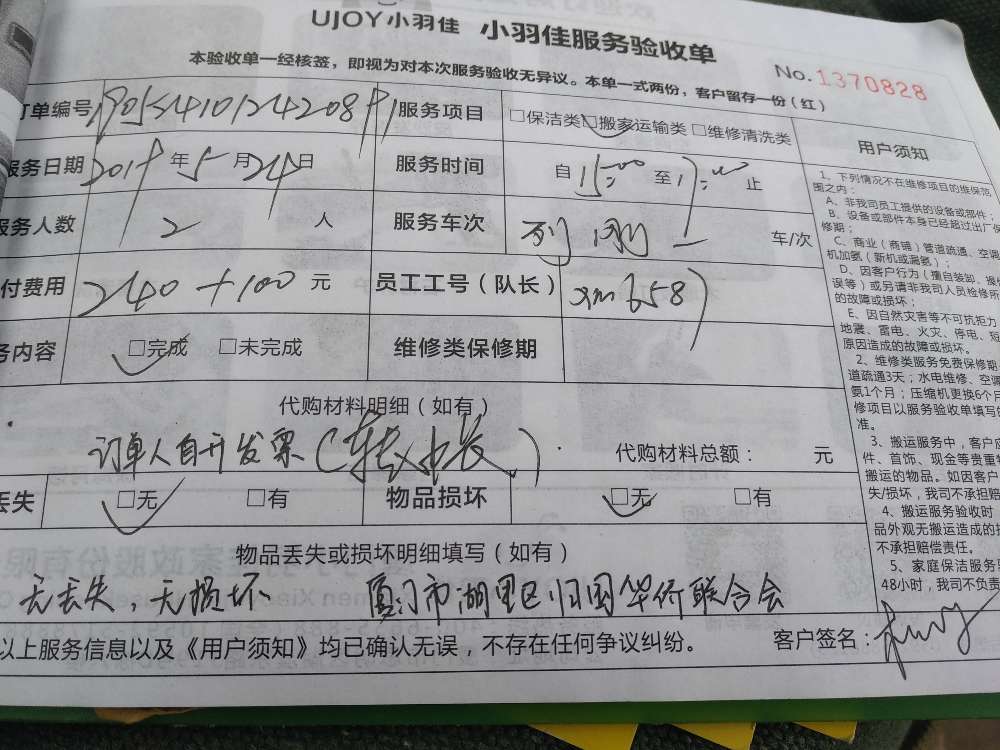 UJOY小羽佳 小羽佳服务验收单
本验收单一经核签，即视为对本次服务验收无异议。本单一式两份，客户留存一份（红）
No.1370828
订单编号 服务项目 □保洁类 □搬家运输类 □维修清洗类
服务日期 2019年5月24日 服务时间 自15:00至17:00止
服务人数 2 人 服务车次 车/次
付费用 240+100元 员工工号（队长） xm6587
务内容 □完成 □未完成 维修类保修期
代购材料明细（如有）
订单人自开发票 代购材料总额： 元
丢失 □无 □有 物品损坏 □无 □有
物品丢失或损坏明细填写（如有）
无丢失，无损坏 厦门市湖里区归国华侨联合会
以上服务信息以及《用户须知》均已确认无误，不存在任何争议纠纷。 客户签名：
用户须知
1、下列情况不在维修项目的维保范
围之内：
A、非我司员工提供的设备或部件；
B、设备或部件本身已经超过出厂保
修期；
C、商业（商铺）管道疏通、空调
机加氨（新机或漏氨）；
D、因客户行为（擅自装卸、操
误等）或另请非我司人员检修所
的故障或损坏；
E、因自然灾害等不可抗拒力
地震、雷电、火灾、停电、短
原因造成的故障或损坏。
2、维修类服务免费保修期
道疏通3天；水电维修、空调
氨1个月；压缩机更换6个月
修项目以服务验收单填写的
准。
3、搬运服务中，客户应
件、首饰、现金等贵重物
搬运的物品。如因客户
失/损坏，我司不承担赔
4、搬运服务验收时
品外观无搬运造成的损
不承担赔偿责任。
5、家庭保洁服务
48小时，我司不负责